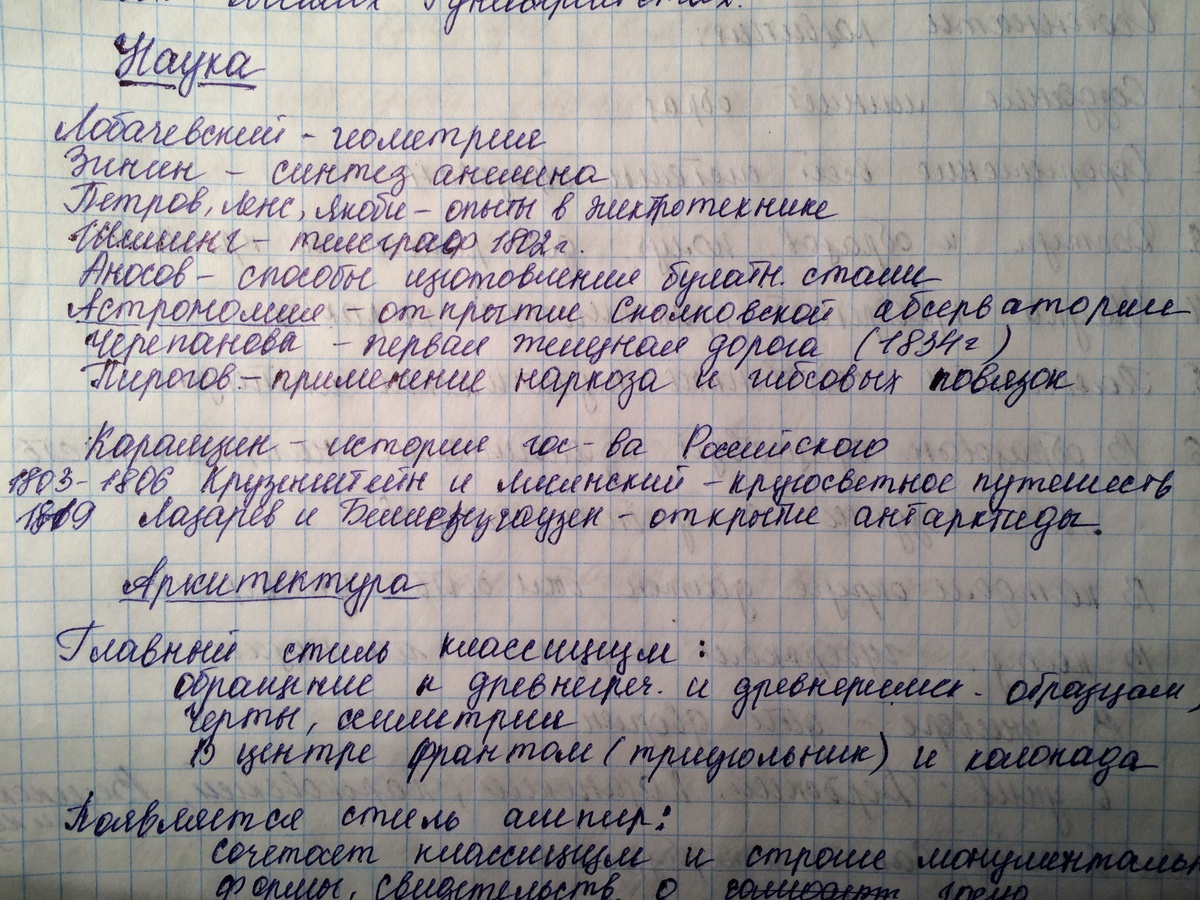 высших
Наука
Лобачевский - геометрии
Зинин - синтез анилина
Петров, Ленс, Якоби - опыты в электротехнике
Шиллинг - телеграф 1802 г.
Аносов - способы изготовления булатн. стали
Астрономия - открытие Сколковской абсерватории
Черепановы - первая железная дорога (1834г)
Пирогов - применение наркоза и гибсовых повязок
Карамзин - история гос-ва Российского
1803-1806 Крузенштейн и Лисянский - кругосветное путешеств
1819 Лазарев и Беллинсгаузен - открытие антарктиды.
Архитектура
Главный стиль классицизм:
обращение к древнегреч. и древнеримск. образцам,
черты, симетрии
В центре франтом (триугольник) и колонада
Появляется стиль ампир:
сочетает классицизм и строгие монументаль
формы, свидетельств. о